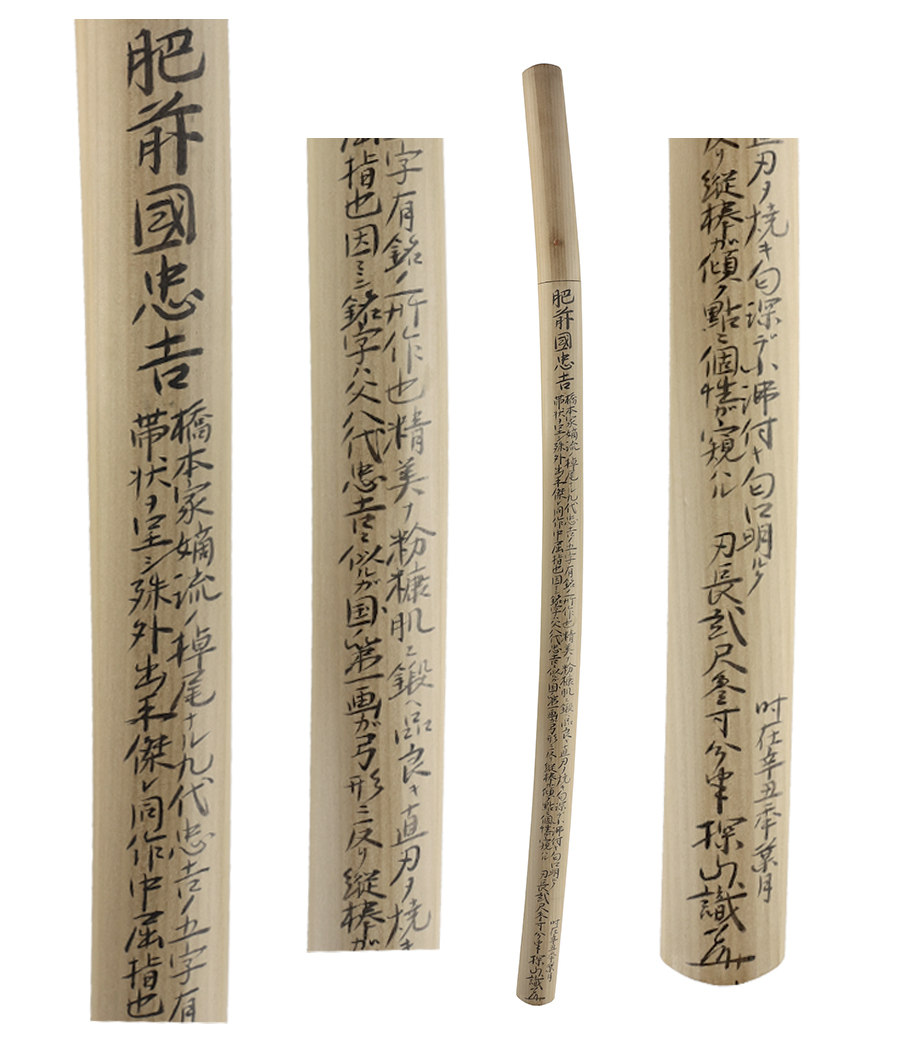 肥前國忠吉
橋本家嫡流ノ掉尾ナル九代忠吉ノ五字有銘ノ所作也精美ナ粉糠肌ニ鍛ヘ品良キ直刃ヲ焼キ匂深ク小沸付キ匂口明ルク
帯状ヲ呈シ殊外出来傑レ同作中屈指也因ミニ銘字ハ父八代忠吉ニ似ルガ国ノ第一画ガ弓形ニ反リ縦棒ガ傾ク點ニ個性ガ窺ハル
刃長弐尺参寸分半
时在辛丑年葉月
探山識